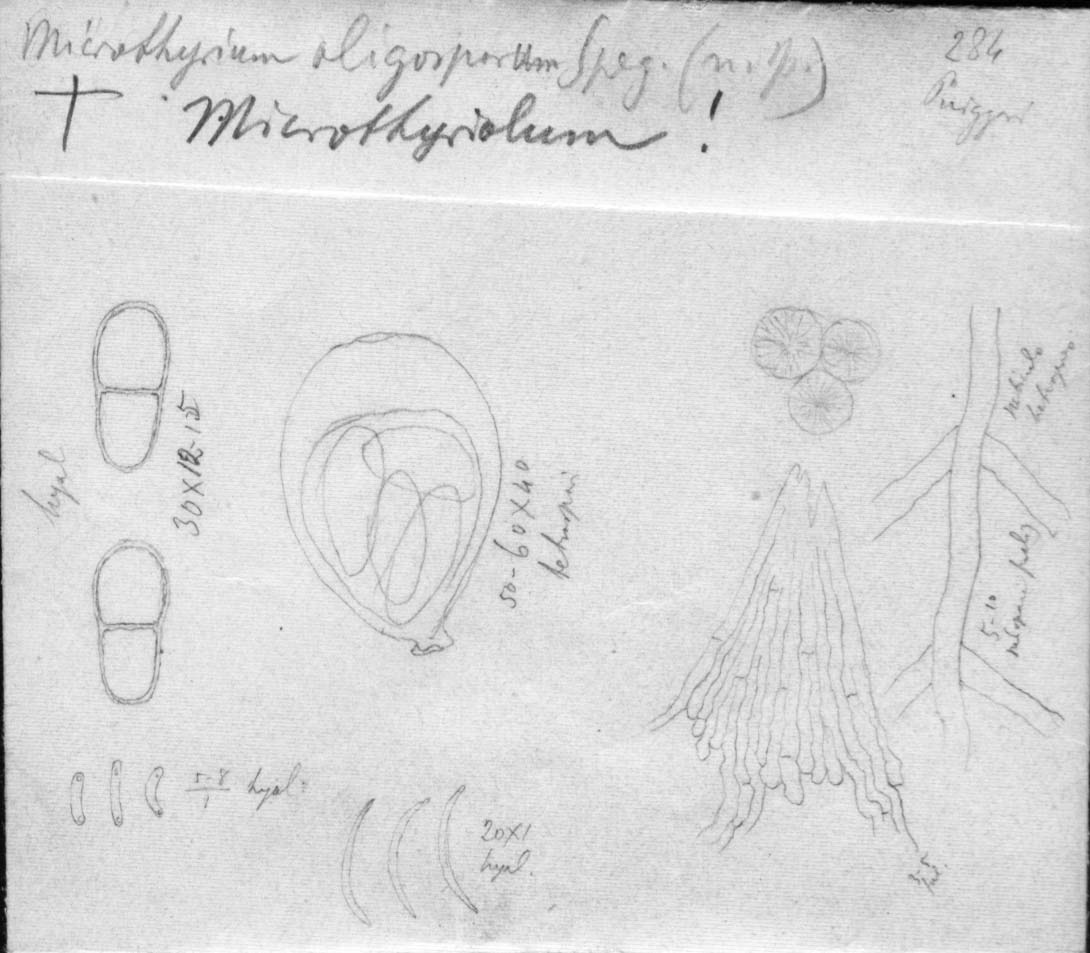 Microthyrium oligosporum Speg. (n. sp.)
284
Puiggari
† Microthyriolum !
hyal
30×12-15
50-60×40
tetraspori
5-8/1 hyal.
20×1
hyal.
5-10